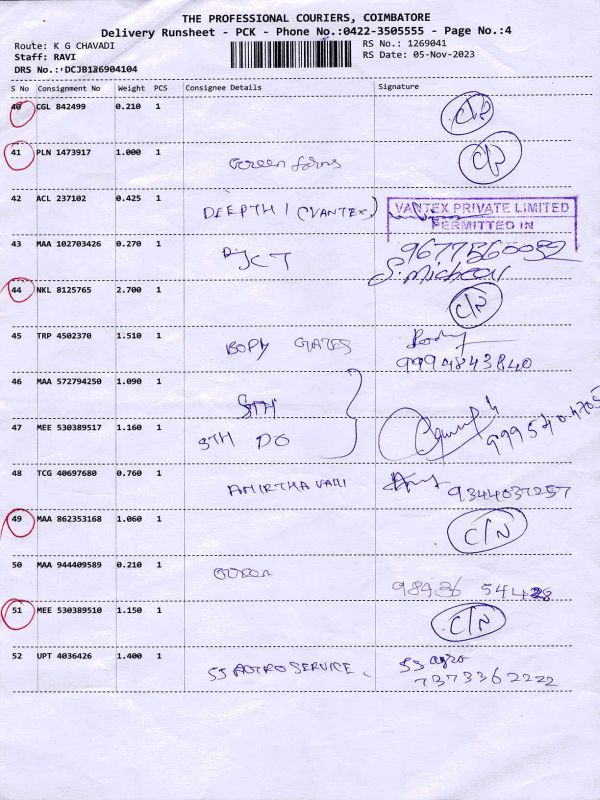 THE PROFESSIONAL COURIERS, COIMBATORE
Delivery Runsheet - PCK - Phone No.:0422-3505555 - Page No.:4
Route: K G CHAVADI
RS No.: 1269041
Staff: RAVI
RS Date: 05-Nov-2023
DRS No.: DCJB126904104
S No Consignment No Weight PCS Consignee Details Signature
40 CGL 842499 0.210 1
41 PLN 1473917 1.000 1 Green farms
42 ACL 237102 0.425 1 DEEPTHI (VANTEX) VANTEX PRIVATE LIMITED
PERMITTED IN
43 MAA 102703426 0.270 1 JCT 9677560032
44 NKL 8125765 2.700 1 C/N
45 TRP 4502370 1.510 1 BOPY GATES
9994843840
46 MAA 572794250 1.090 1 STH
47 MEE 530389517 1.160 1 STH DO
48 TCG 40697680 0.760 1 AMIRTHAVALLI 9344037257
49 MAA 862353168 1.060 1 C/N
50 MAA 944409589 0.210 1
51 MEE 530389510 1.150 1 C/N
52 UPT 4036426 1.400 1 SS AGRO SERVICE SS agro
7373362222